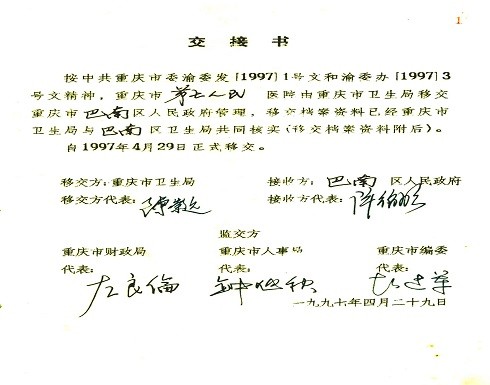 1
交接书
按中共重庆市委渝委发[1997]1号文和渝委办[1997]3
号文精神，重庆市第七人民医院由重庆市卫生局移交
重庆市巴南区人民政府管理，移交档案资料已经重庆市
卫生局与巴南区卫生局共同核实(移交档案资料附后)。
自1997年4月29日正式移交。
移交方:重庆市卫生局 接收方:巴南区人民政府
移交方代表: 接收方代表:
监交方
重庆市财政局 重庆市人事局 重庆市编委
代表: 代表: 代表:
左良倫
一九九七年四月二十九日